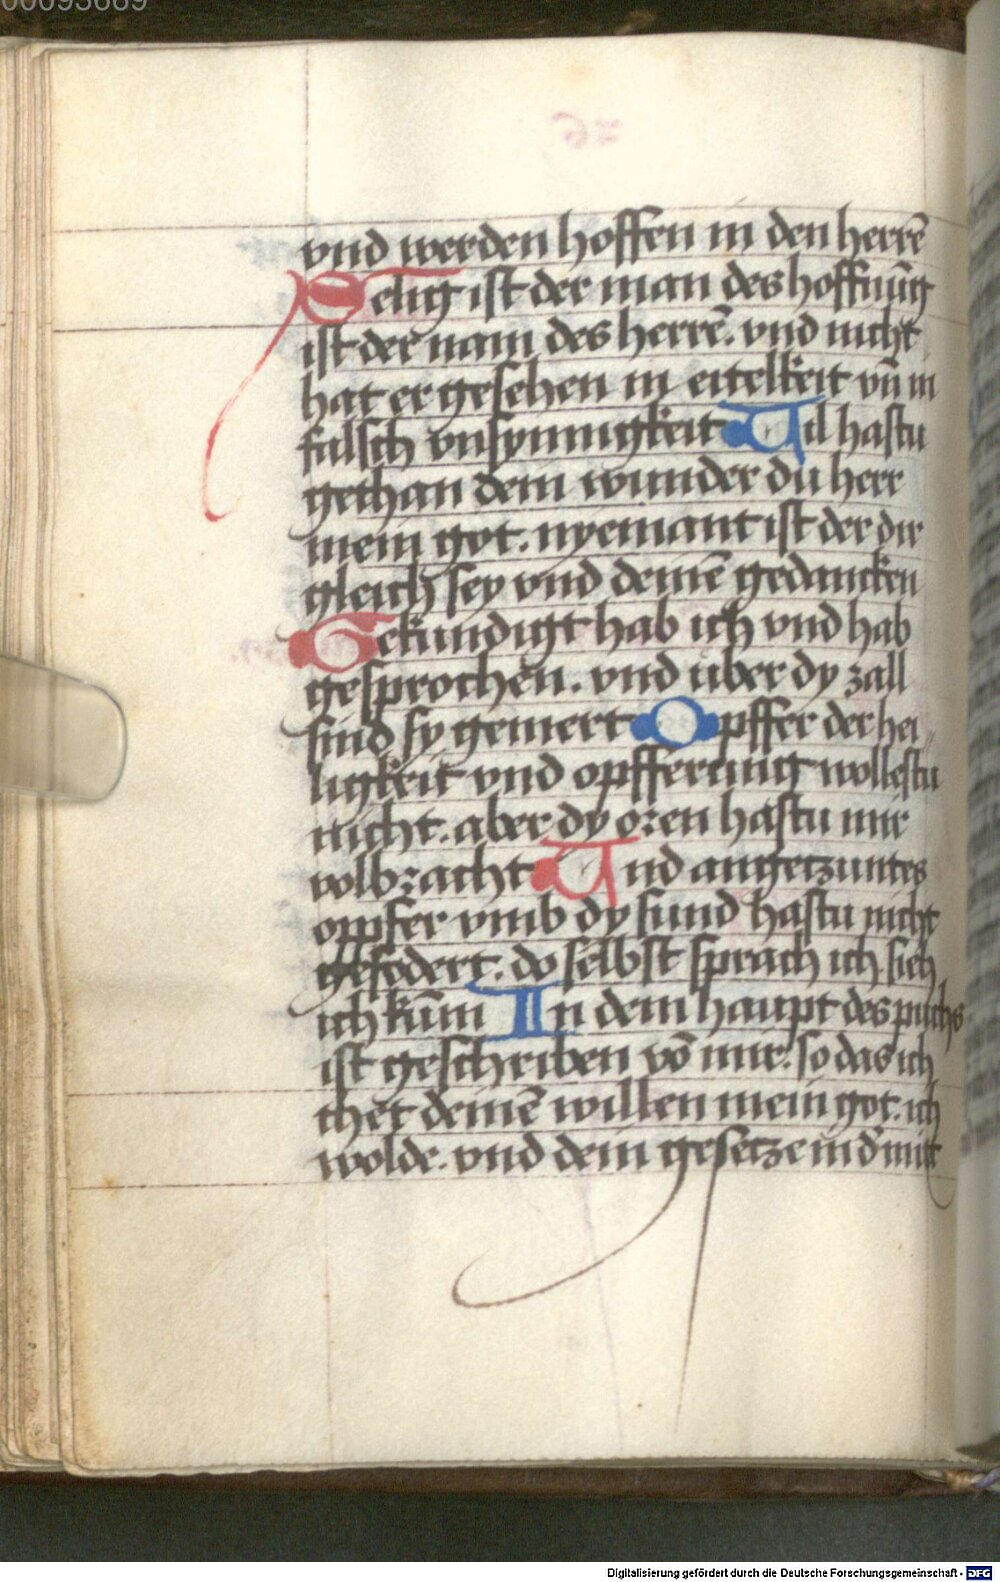 00093669
vnd werden hoffen in den herrē
Selig ist der man des hoffnūg
ist der nam des herrē. vnd nicht
hat er gesehen in eitelkeit vn̄ in
falsch vnsynnigkeit Uil hastu
gethan dein wunder du herr
mein got. nyemant ist der dir
gleich sey vnd deinē gedancken
Gekundigt hab ich vnd hab
gesprochen. vnd uber dy zall
sind sy gemert Opffer der hei
ligkeit vnd opfferung wollestu
nicht. aber dy oren hastu mir
volbracht Und angetzuntes
oppfer vmb dy sund hastu nicht
gefodert. do selbst sprach ich. sich
ich kūm In dem haupt des puchs
ist geschriben vō mir. so das ich
thet deinē willen mein got. ich
wolde. vnd dein gesetze in d' mitt
Digitalisierung gefördert durch die Deutsche Forschungsgemeinschaft - DFG